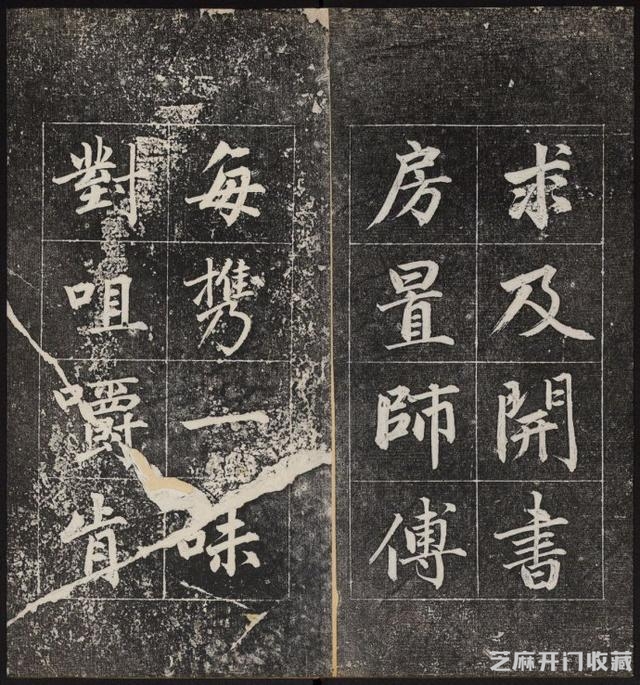 求及開書
房置師傅
每携一味
對咀嚼肯
芝麻开门收藏